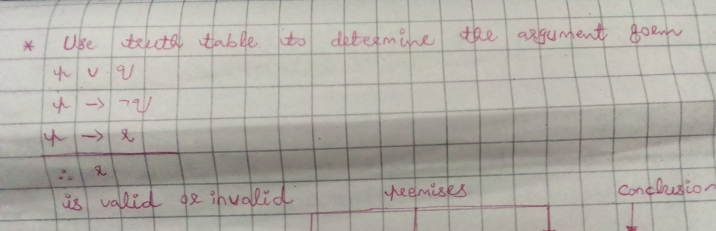 * Use truth table to determine the argument form
p ∨ q
p → ¬q
p → r
∴ r
is valid or invalid premises conclusion